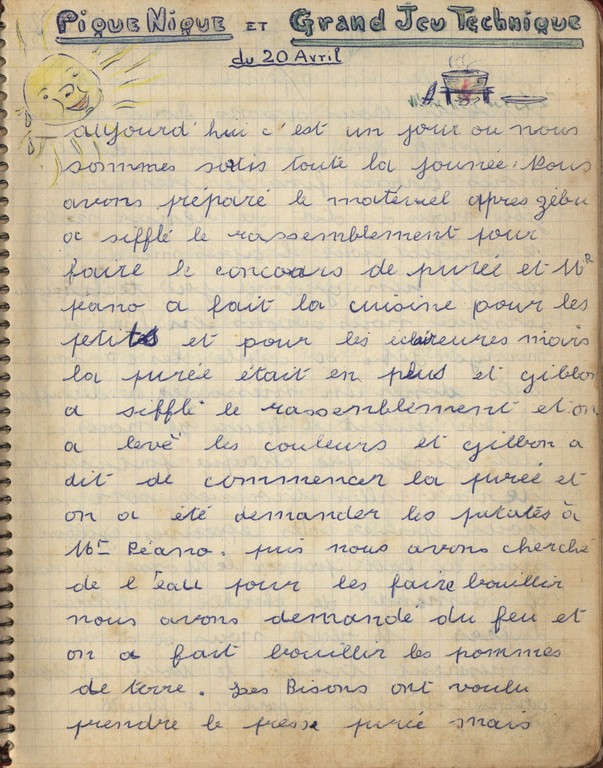 Pique Nique et Grand Jeu Technique
du 20 Avril
aujourd'hui c'est un jour ou nous
sommes sortis toute la journée. Nous
avons préparé le matériel apres zébu
a sifflé le rassemblement pour
faire le concours de purée et Mr
peano a fait la cuisine pour les
petits et pour les éclaireures mais
la purée était en plus et gibbon
a sifflé le rassemblement et on
a levé les couleurs et gibbon a
dit de commencer la purée et
on a été demander les patates à
Mr Péano. puis nous avons cherché
de l'eau pour les faire bouillir
nous avons demandé du feu et
on a fait bouillir les pommes
de terre. Les Bisons ont voulu
prendre le presse purée mais